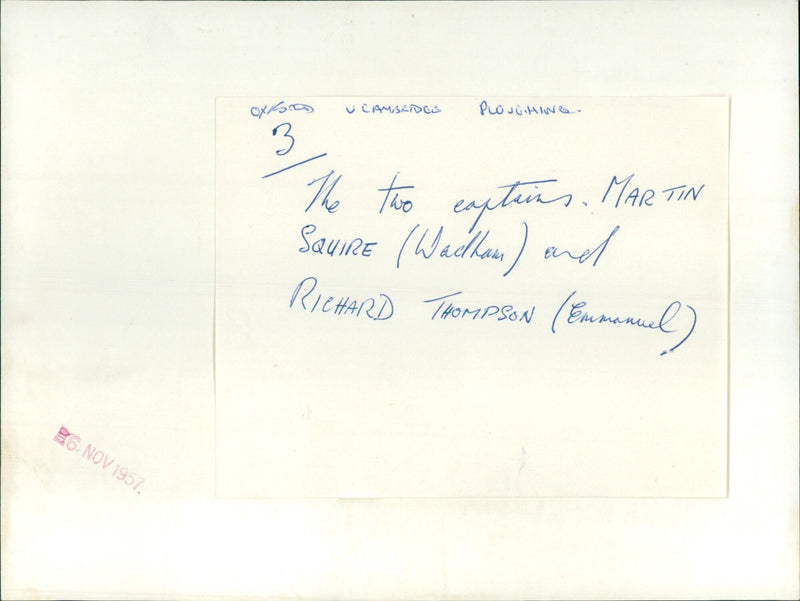 OXFORD V CAMBRIDGE PLOUGHING.
3
The two captains. MARTIN
SQUIRE (Wadham) and
RICHARD THOMPSON (Emmanuel).
6 NOV 1957.